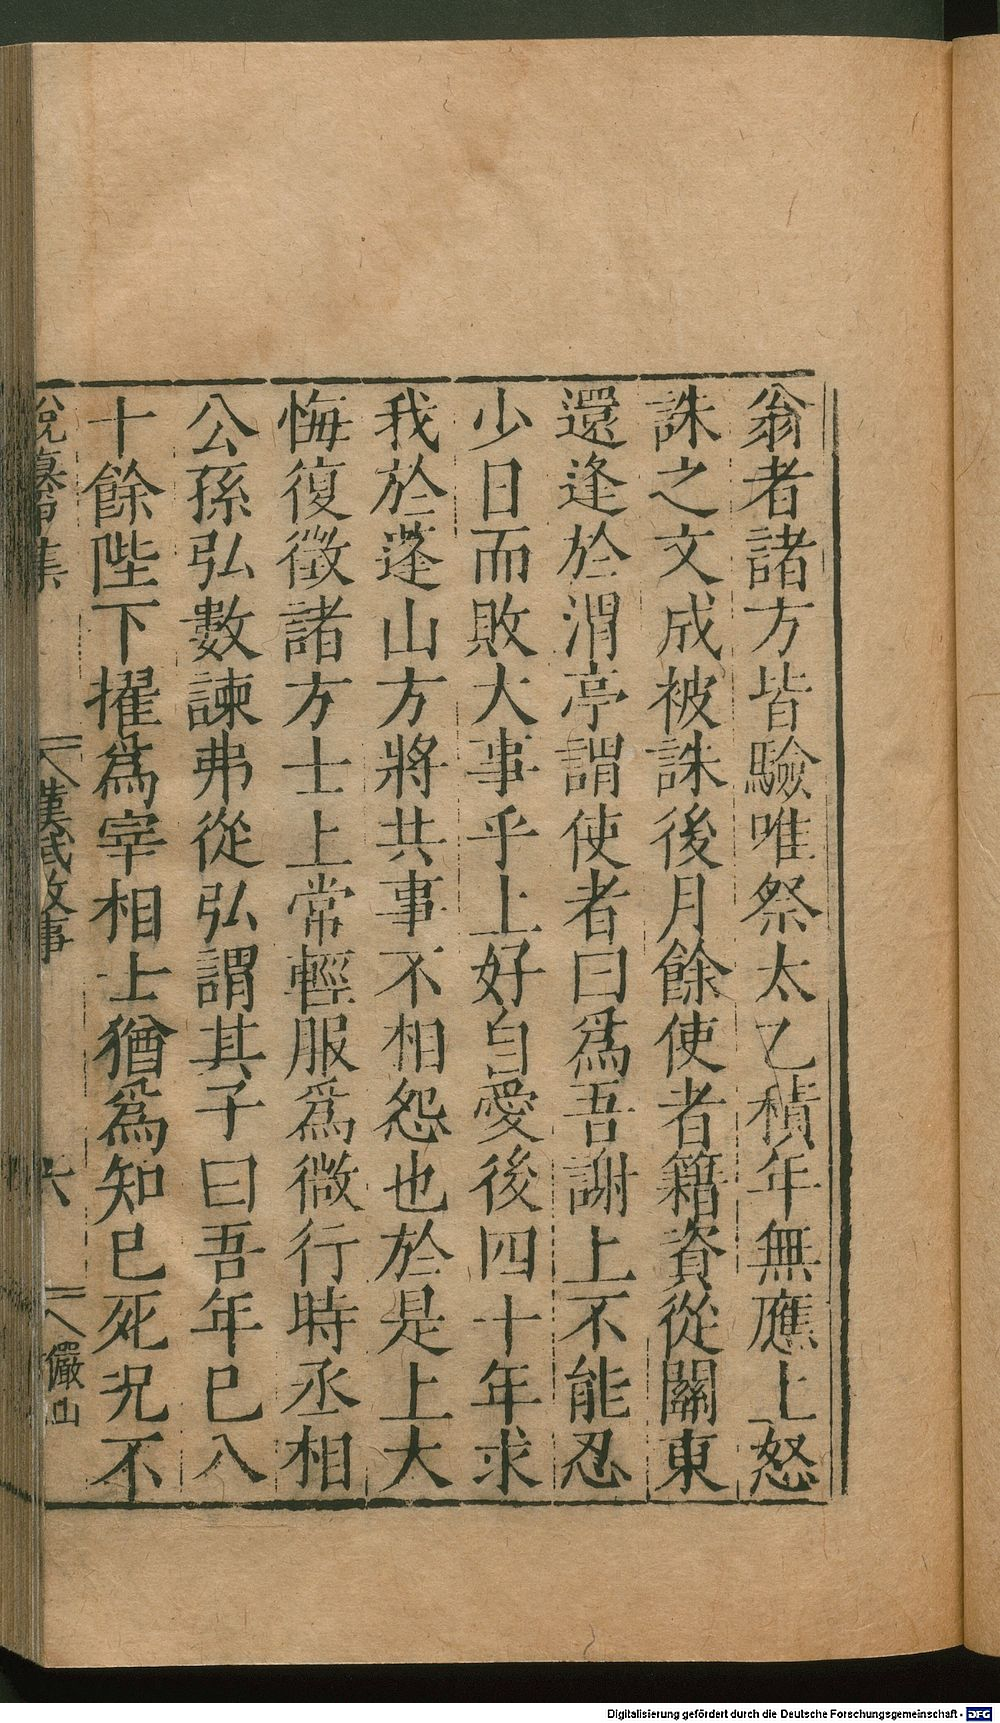 翁者諸方皆驗唯祭太乙積年無應上怒
誅之文成被誅後月餘使者籍資從關東
還逢於渭亭謂使者曰爲吾謝上不能忍
少日而敗大事乎上好自愛後四十年求
我於蓬山方將共事不相怨也於是上大
悔復徵諸方士上常輕服爲微行時丞相
公孫弘數諫弗從弘謂其子曰吾年已八
十餘陛下擢爲宰相士猶爲知已死況不
說纂甲集
漢武故事
六
儼山
Digitalisierung gefördert durch die Deutsche Forschungsgemeinschaft - DFG